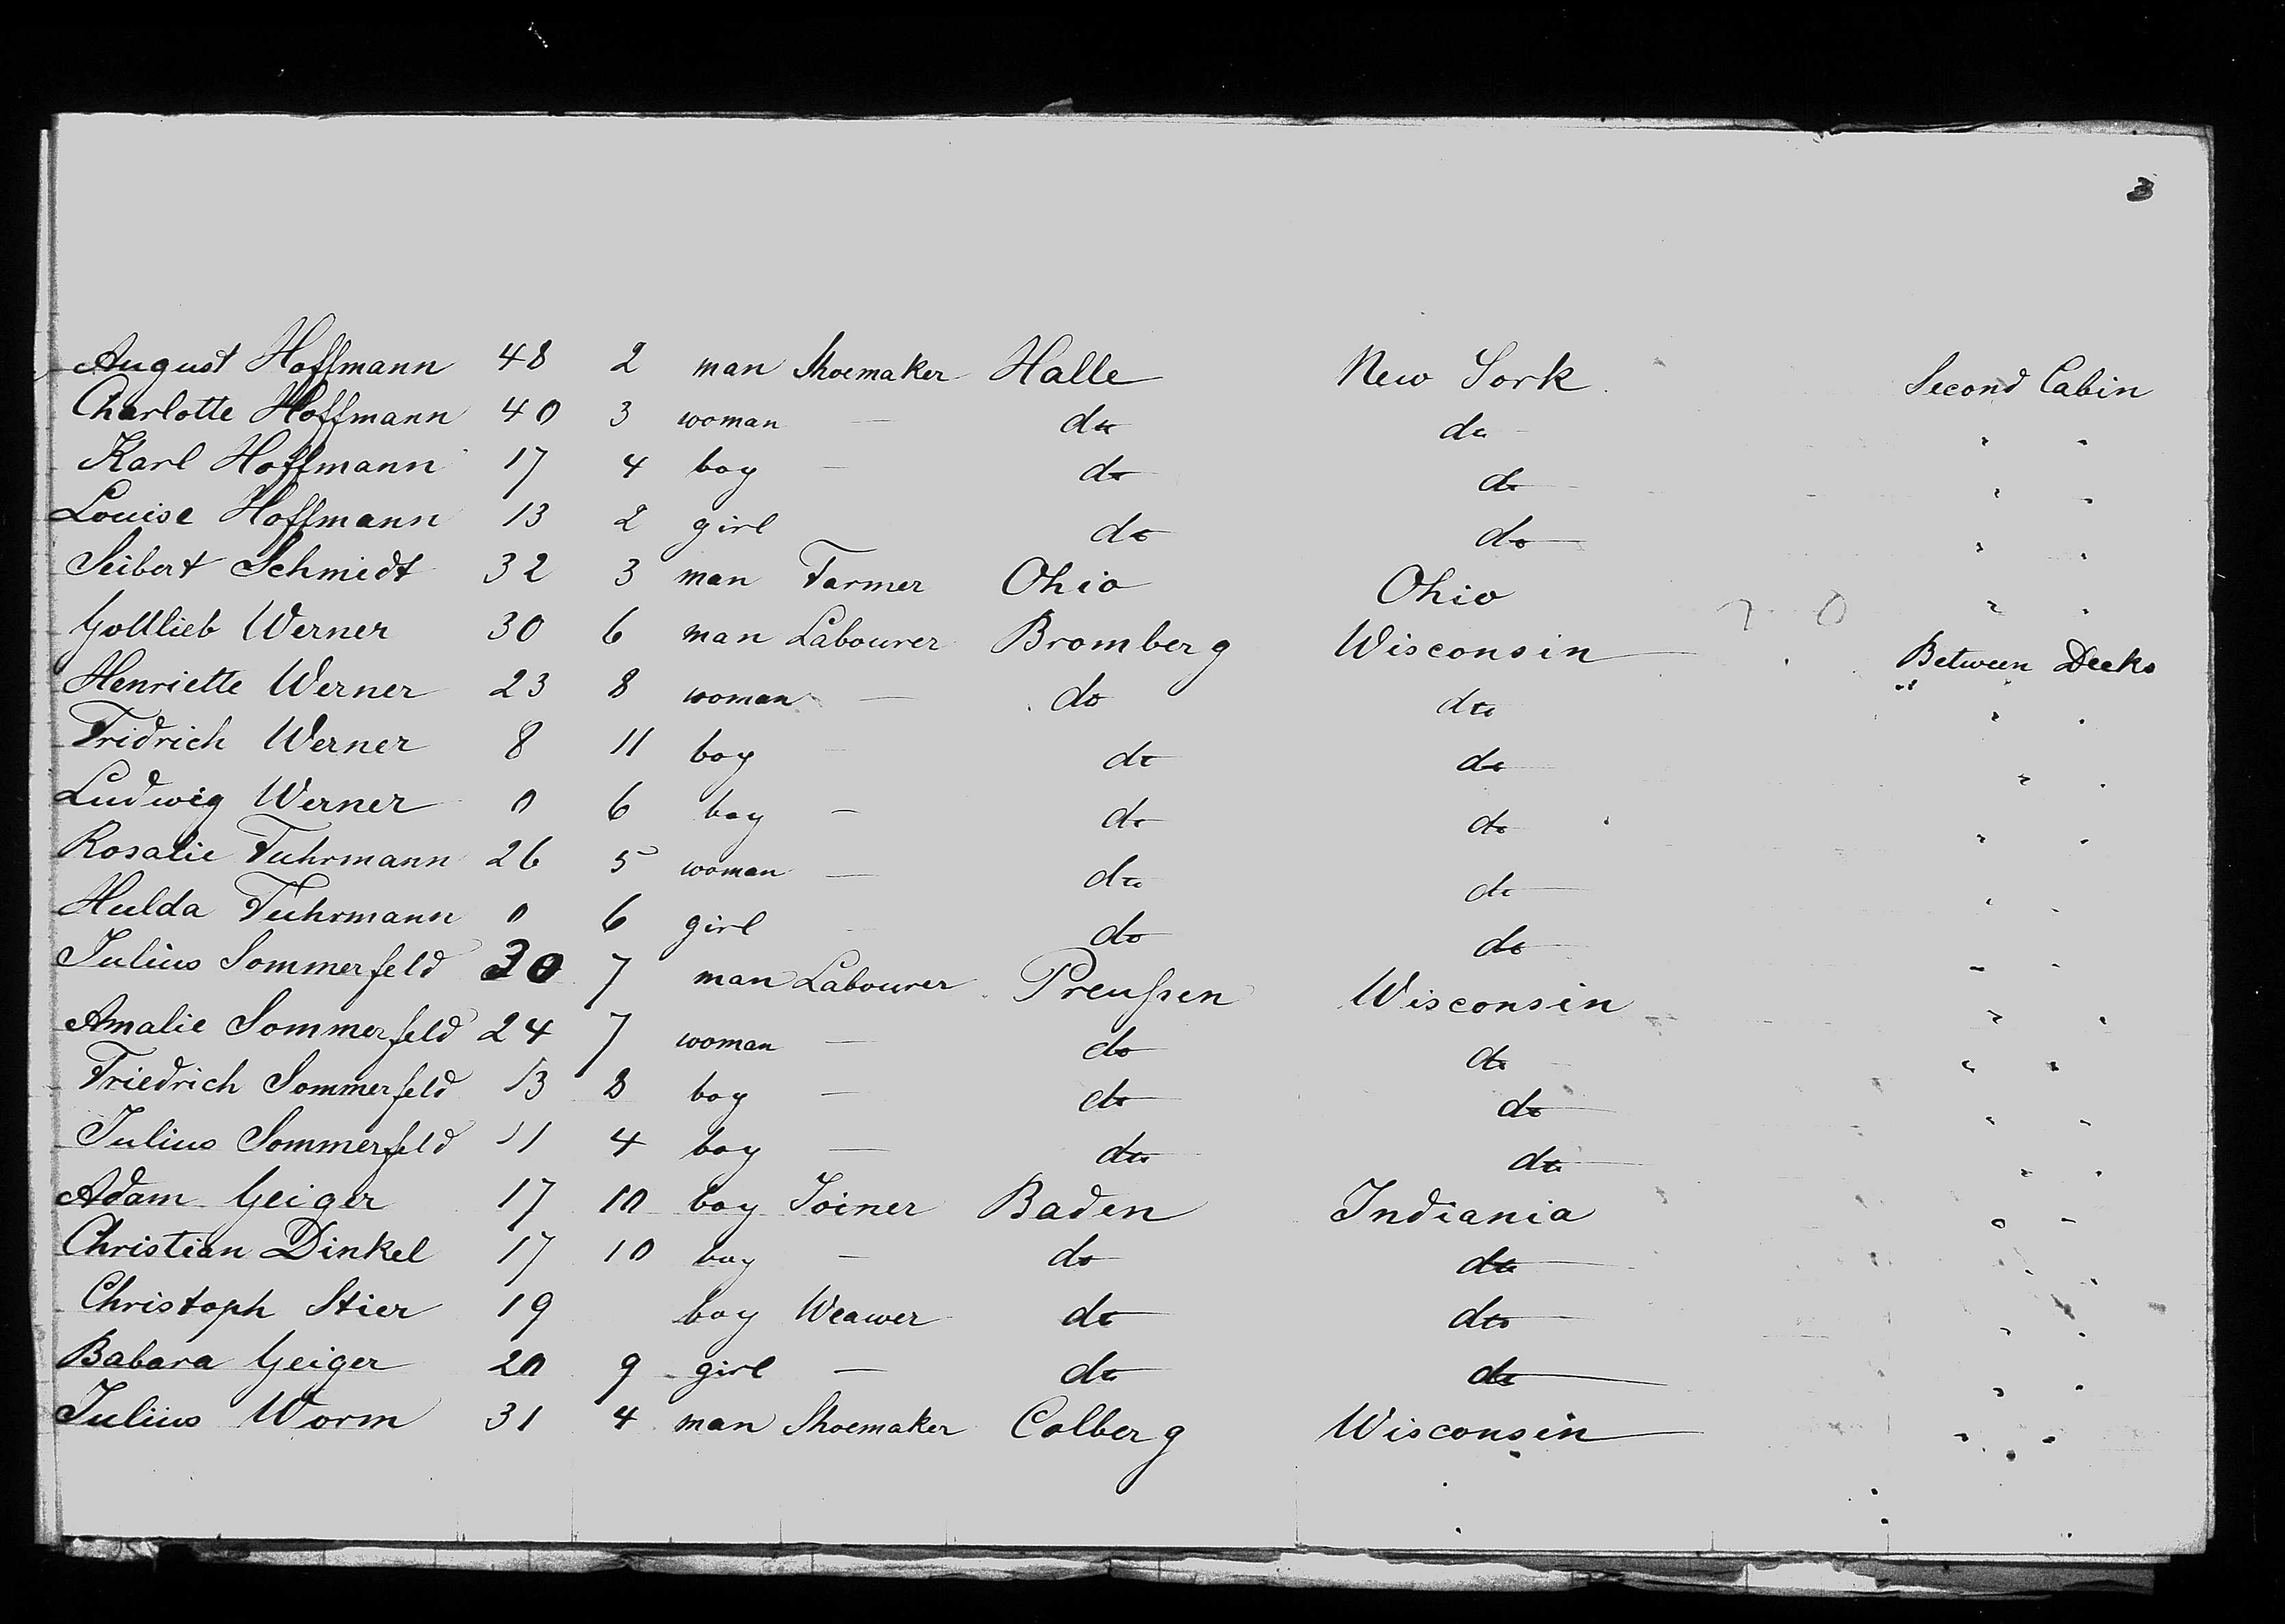 3
August Hoffmann 48 2 man Shoemaker Halle New York Second Cabin
Charlotte Hoffmann 40 3 woman — do do " "
Karl Hoffmann 17 4 boy — do do " "
Louise Hoffmann 13 2 girl do do " "
Seibert Schmidt 32 3 man Farmer Ohio Ohio " "
Gottlieb Werner 30 6 man Labourer Bromberg Wisconsin Between Decks
Henriette Werner 23 8 woman — do do " "
Fridrich Werner 8 11 boy do do " "
Ludwig Werner 0 6 boy — do do " "
Rosalie Fuhrmann 26 5 woman — do do " "
Hulda Fuhrmann 0 6 girl do do " "
Julius Sommerfeld 30 7 man Labourer Preußen Wisconsin " "
Amalie Sommerfeld 24 7 woman — do do " "
Friedrich Sommerfeld 13 8 boy — do do " "
Julius Sommerfeld 11 4 boy — do do " "
Adam Geiger 17 10 boy Joiner Baden Indiania " "
Christian Dinkel 17 10 boy — do do " "
Christoph Stier 19 boy Weawer do do " "
Babara Geiger 20 9 girl — do do " "
Julius Worm 31 4 man Shoemaker Colberg Wisconsin " "